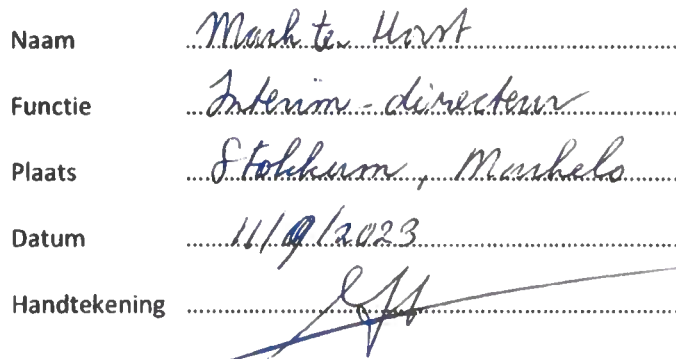 Naam Mark ter Horst
Functie Interim-directeur
Plaats Stokkum, Markelo
Datum 11/9/2023
Handtekening